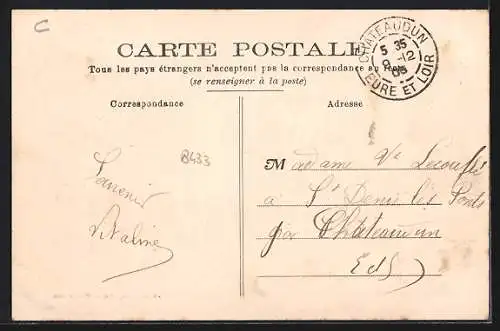 C
CARTE POSTALE
Tous les pays étrangers n'acceptent pas la correspondance au
(se renseigner à la poste)
CHATEAUDUN
5 35
9-12
05
EURE ET LOIR
Correspondance
Adresse
8433
Souvenir
Vitaline
Madame Ve Lecouflé
à St Denis les Ponts
par Châteaudun
E &